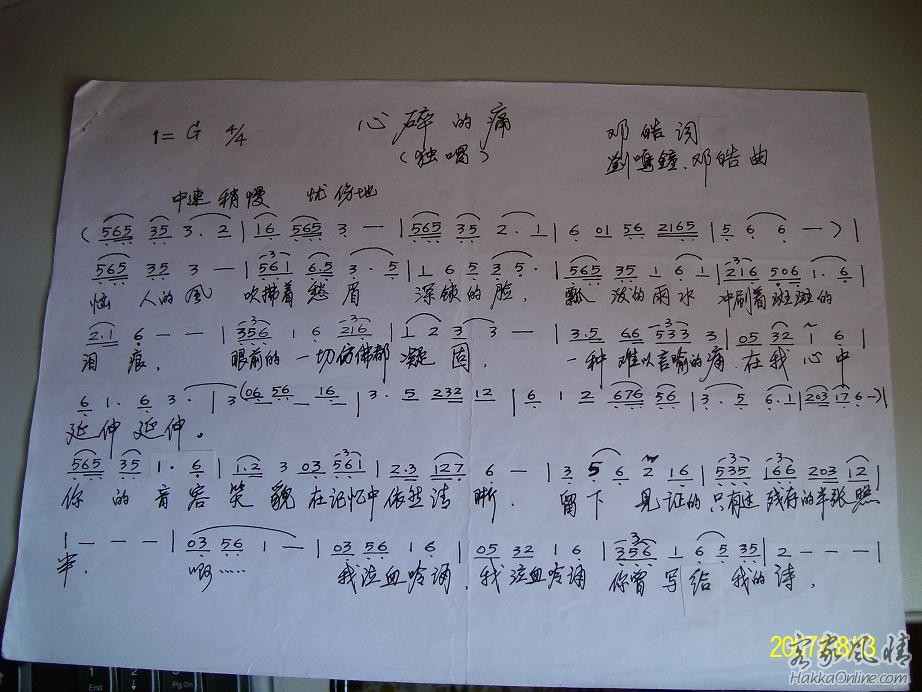 心碎的痛
1=G 4/4 （独唱） 邓皓词
劉鸣鐘、邓皓曲
中速稍慢 忧伤地
( 565 35 3. 2 | 16 565 3 — | 565 35 2. 1 | 6 01 56 2165 | 5 6 6 — ) |
565 35 3 — | 561 6.5 3. 5 | 1 6 5 3 5. | 565 35 1 6 1 | 216 506 1. 6 |
恼人的风 吹拂着愁眉 深锁的脸， 飘泼的雨水 冲刷着斑斑的
2.1 6 — — | 356 1 6 216 | 1 2 3 3 — | 3.5 66 533 3 | 05 32 1 6 |
泪痕， 眼前的一切仿佛都凝固， 一种难以言喻的痛 在我心中
6 1. 6 3. | 3 (06 56 — 16 | 3. 5 232 12 | 6 1 2 676 56 | 3. 5 6.1 | 203 17 6 —) |
延伸 延伸。
565 35 1. 6 | 1.2 3 03 561 | 2.3 127 6 — | 3 5 6 2 16 | 535 166 203 12 |
你的音容笑貌 在记忆中依然清晰， 留下见证的只有这残存的半张照
1 — — — | 03 56 1 — | 03 56 1 6 | 05 32 1 6 | 356 1 6 5 35 | 2 — — — |
啊…… 我泣血吟诵，我泣血吟诵 你曾写给我的诗，
客家风情
HakkaOnline.com